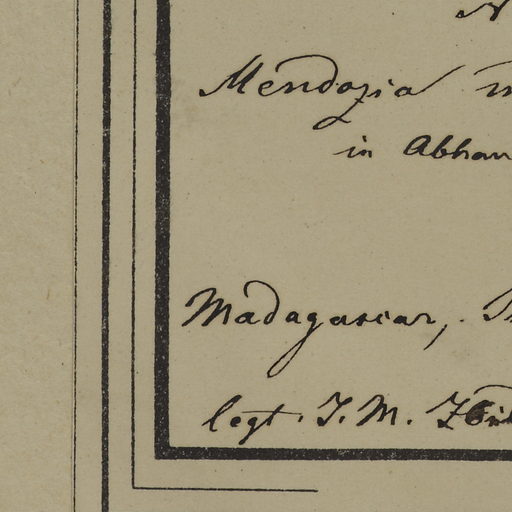 Mendozia
in Abhan
Madagascar,
legt. J. M.